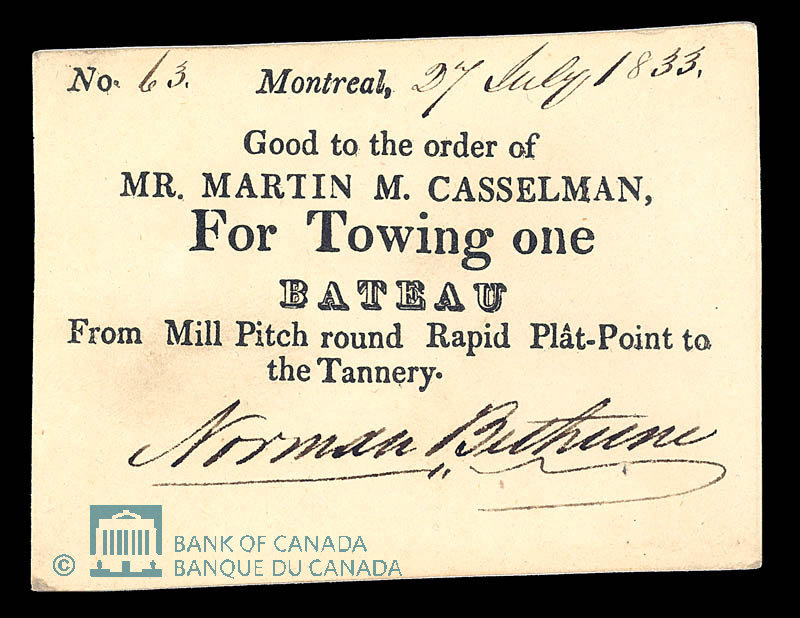 No. 63. Montreal, 27 July 1833.
Good to the order of
MR. MARTIN M. CASSELMAN,
For Towing one
BATEAU
From Mill Pitch round Rapid Plât-Point to
the Tannery.
Norman Bethune
© BANK OF CANADA
BANQUE DU CANADA